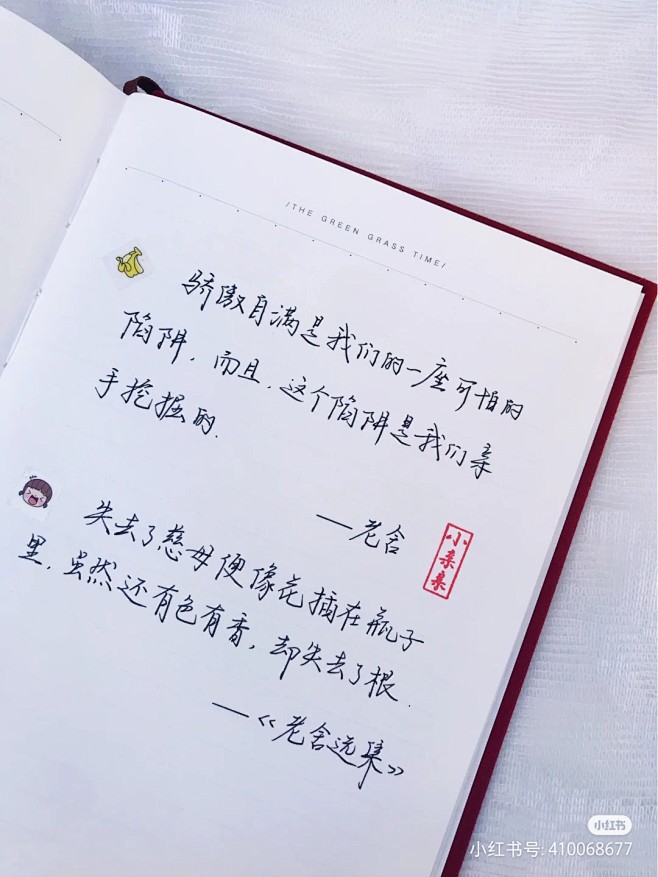 /THE GREEN GRASS TIME/
骄傲自满是我们的一座可怕的
陷阱，而且，这个陷阱是我们亲
手挖掘的.
——老舍
小亲亲
失去了慈母便像花插在瓶子
里，虽然还有色有香，却失去了根.
——《老舍选集》
小红书
小红书号: 410068677